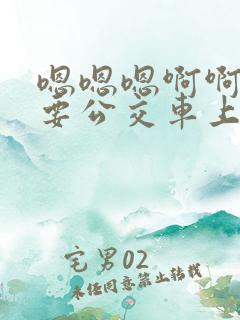 嗯嗯嗯啊啊
要公交车上
宅男02
未经同意禁止转载